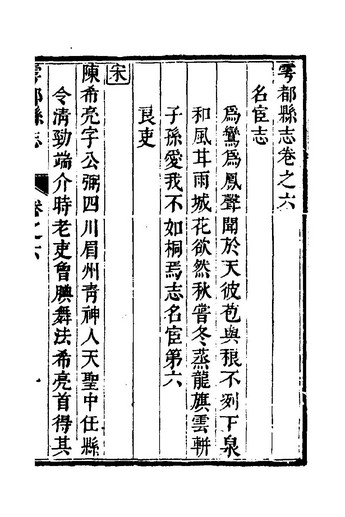 雩都縣志卷之六
名宦志
爲鸞爲鳳聲聞於天彼苞與稂不列下泉
和風甘雨城花欲然秋嘗冬蒸龍旗雲輧
子孫愛我不如桐焉志名宦第六
良吏
宋
陳希亮字公弼四川眉州靑神人天聖中任縣
令淸勁端介時老吏曾腆舞法希亮首得其
雩都縣志
卷之六
一